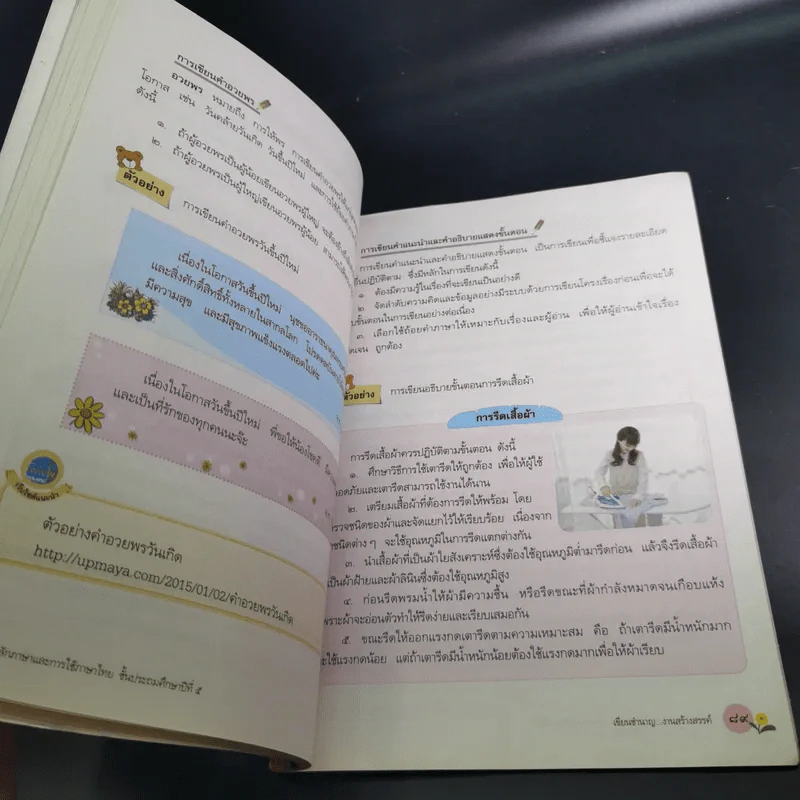 การเขียนคำอวยพร
อวยพร หมายถึง การให้พร การเขียนคำอวยพร
โอกาส เช่น วันคล้ายวันเกิด วันขึ้นปีใหม่ และการใช้
ดังนี้
๑. ถ้าผู้อวยพรเป็นผู้น้อยเขียนอวยพรผู้ใหญ่
๒. ถ้าผู้อวยพรเป็นผู้ใหญ่เขียนอวยพรผู้น้อย
ตัวอย่าง
การเขียนคำอวยพรวันขึ้นปีใหม่
เนื่องในโอกาสวันขึ้นปีใหม่
และสิ่งศักดิ์สิทธิ์ทั้งหลายในสากลโลก
มีความสุข และมีสุขภาพแข็งแรงตลอดไปค่ะ
เนื่องในโอกาสวันขึ้นปีใหม่ พี่ขอให้น้องโชคดี
และเป็นที่รักของทุกคนนะจ๊ะ
เว็บไซต์แนะนำ
ตัวอย่างคำอวยพรวันเกิด
http://upmaya.com/2015/01/02/คำอวยพรวันเกิด
หลักภาษาและการใช้ภาษาไทย ชั้นประถมศึกษาปีที่ ๕
การเขียนคำแนะนำและคำอธิบายแสดงขั้นตอน
การเขียนคำแนะนำและคำอธิบายแสดงขั้นตอน เป็นการเขียนเพื่อชี้แจงรายละเอียด
ปฏิบัติตาม ซึ่งมีหลักในการเขียนดังนี้
๑. ต้องมีความรู้ในเรื่องที่จะเขียนเป็นอย่างดี
๒. จัดลำดับความคิดและข้อมูลอย่างมีระบบด้วยการเขียนโครงเรื่องก่อนเพื่อจะได้
ขั้นตอนในการเขียนอย่างต่อเนื่อง
๓. เลือกใช้ถ้อยคำภาษาให้เหมาะกับเรื่องและผู้อ่าน เพื่อให้ผู้อ่านเข้าใจเรื่อง
ถูกต้อง
ตัวอย่าง
การเขียนอธิบายขั้นตอนการรีดเสื้อผ้า
การรีดเสื้อผ้า
การรีดเสื้อผ้าควรปฏิบัติตามขั้นตอน ดังนี้
๑. ศึกษาวิธีการใช้เตารีดให้ถูกต้อง เพื่อให้ผู้ใช้
ปลอดภัยและเตารีดสามารถใช้งานได้นาน
๒. เตรียมเสื้อผ้าที่ต้องการรีดให้พร้อม โดย
ตรวจชนิดของผ้าและจัดแยกไว้ให้เรียบร้อย เนื่องจาก
ชนิดต่าง ๆ จะใช้อุณหภูมิในการรีดแตกต่างกัน
๓. นำเสื้อผ้าที่เป็นผ้าใยสังเคราะห์ซึ่งต้องใช้อุณหภูมิต่ำมารีดก่อน แล้วจึงรีดเสื้อผ้า
เป็นผ้าฝ้ายและผ้าลินินซึ่งต้องใช้อุณหภูมิสูง
๔. ก่อนรีดพรมน้ำให้ผ้ามีความชื้น หรือรีดขณะที่ผ้ากำลังหมาดจนเกือบแห้ง
เพราะผ้าจะอ่อนตัวทำให้รีดง่ายและเรียบเสมอกัน
๕. ขณะรีดให้ออกแรงกดเตารีดตามความเหมาะสม คือ ถ้าเตารีดมีน้ำหนักมาก
จะใช้แรงกดน้อย แต่ถ้าเตารีดมีน้ำหนักน้อยต้องใช้แรงกดมากเพื่อให้ผ้าเรียบ
เขียนชำนาญ...งานสร้างสรรค์ ๘๙